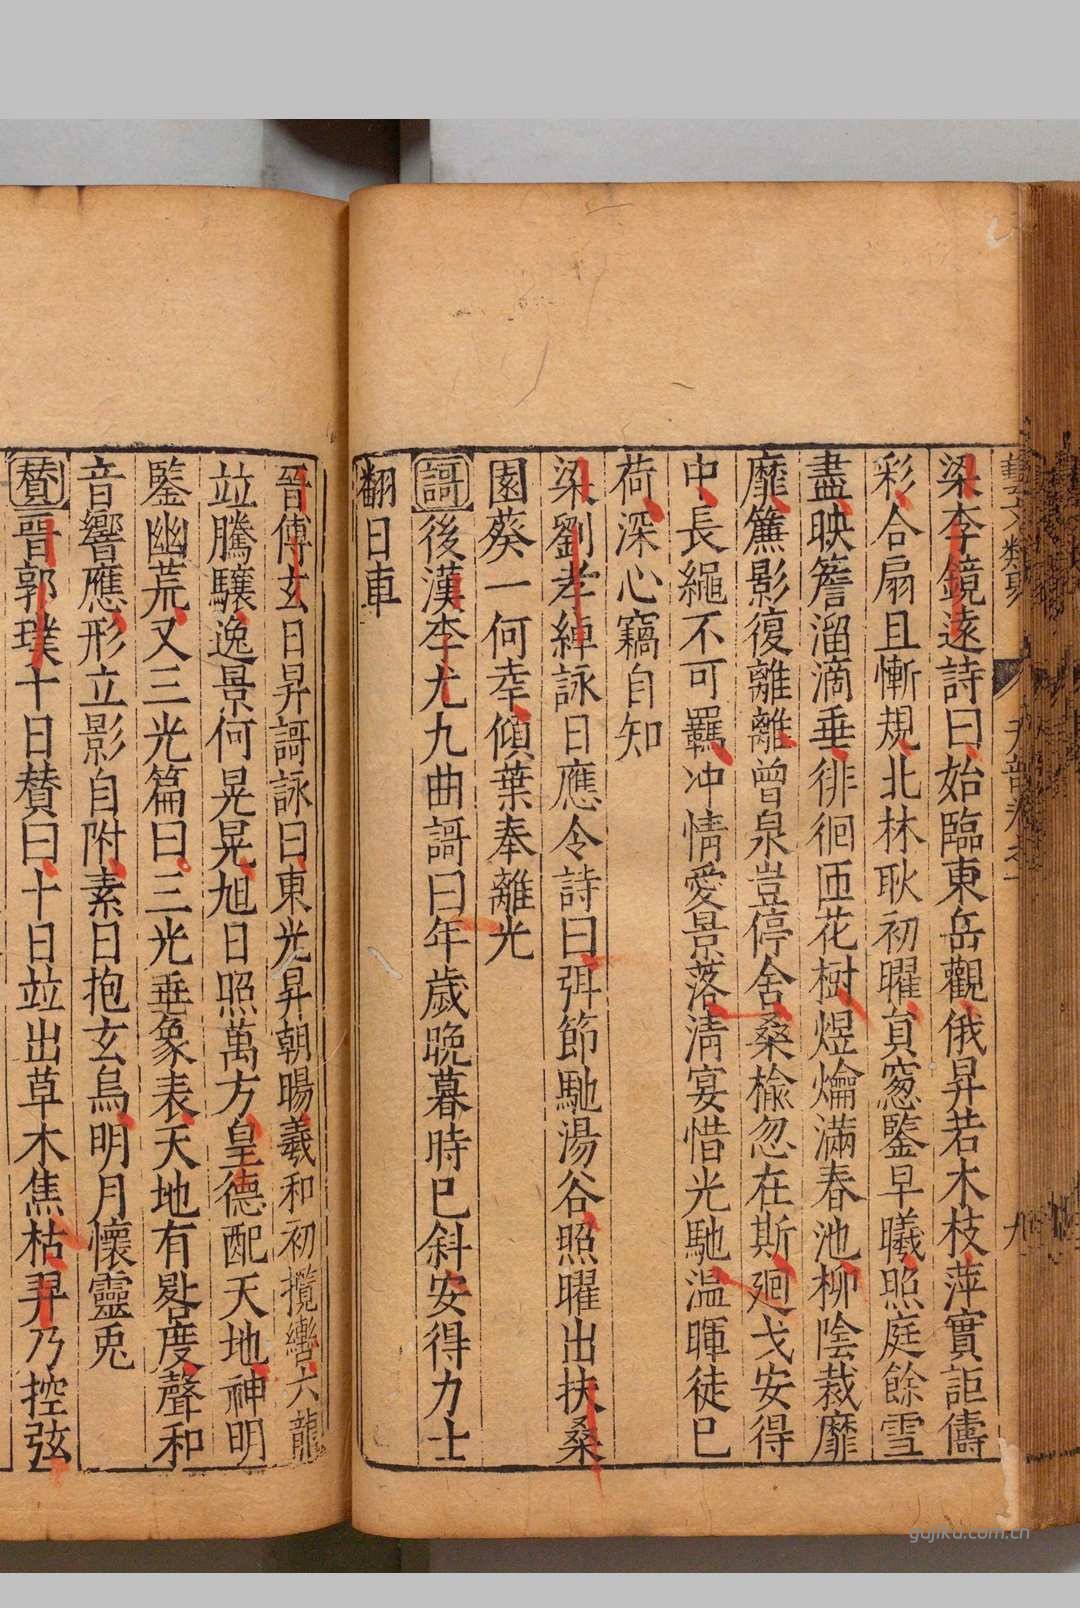 梁李鏡遠詩曰始臨東岳觀俄昇若木枝萍實詎儔
彩合扇且慚規北林耿初曜眞窓鑒早曦照庭餘雪
盡映簷溜滴垂徘徊匝花樹煜爚滿春池柳陰裁靡
靡簾影復離離曾泉豈停舍桑榆忽在斯廻戈安得
中長繩不可羈沖情愛景落淸宴惜光馳溫暉徒已
荷深心竊自知
梁劉孝綽詠日應令詩曰弭節馳湯谷照曜出扶桑
園葵一何幸傾葉奉離光
謌後漢李尤九曲謌曰年歲晚暮時已斜安得力士
翻日車
晉傅玄日昇謌詠曰東光昇朝暘羲和初攬轡六龍
竝騰驤逸景何晃晃旭日照萬方皇德配天地神明
鑒幽荒又三光篇曰三光垂象表天地有晷度聲和
音響應形立影自附素日抱玄烏明月懷靈兎
贊晉郭璞十日贊曰十日竝出草木焦枯羿乃控弦
藝文類聚
天部卷之一
九
gujiku.com.cn